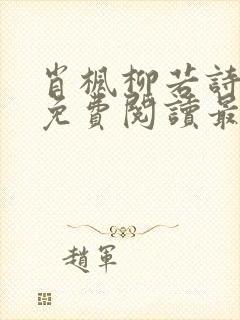 肖楓柳若詩
免費閱讀最
趙軍